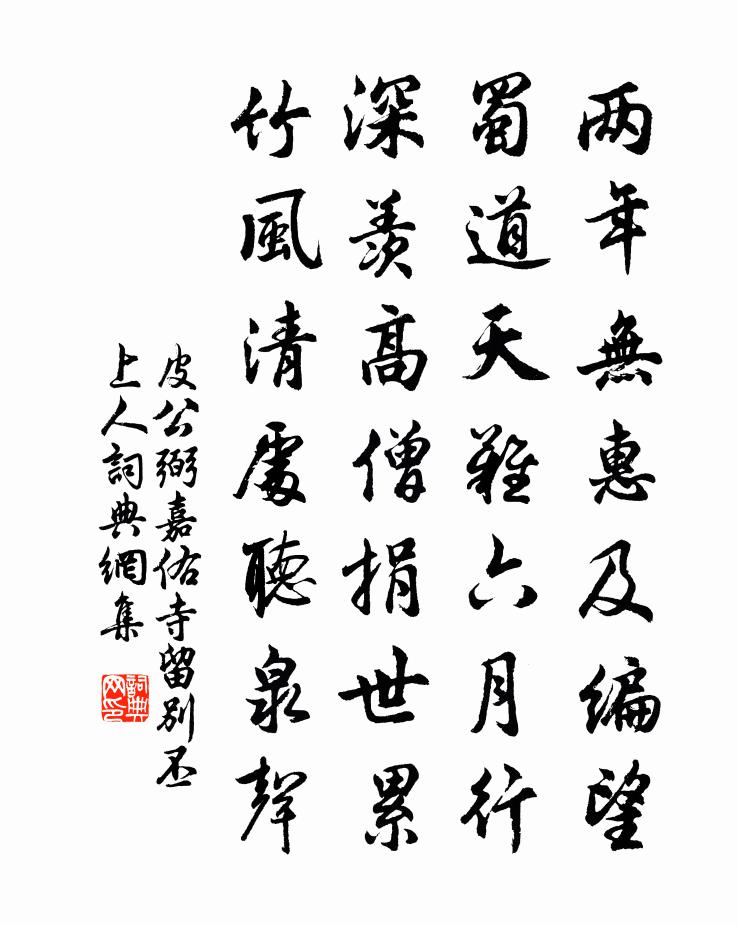 两年無惠及编望
蜀道天難六月行
深羨高僧捐世累
竹風清處聽泉聲
皮公弼嘉佑寺留別丕
上人詞典網集
詞典网印